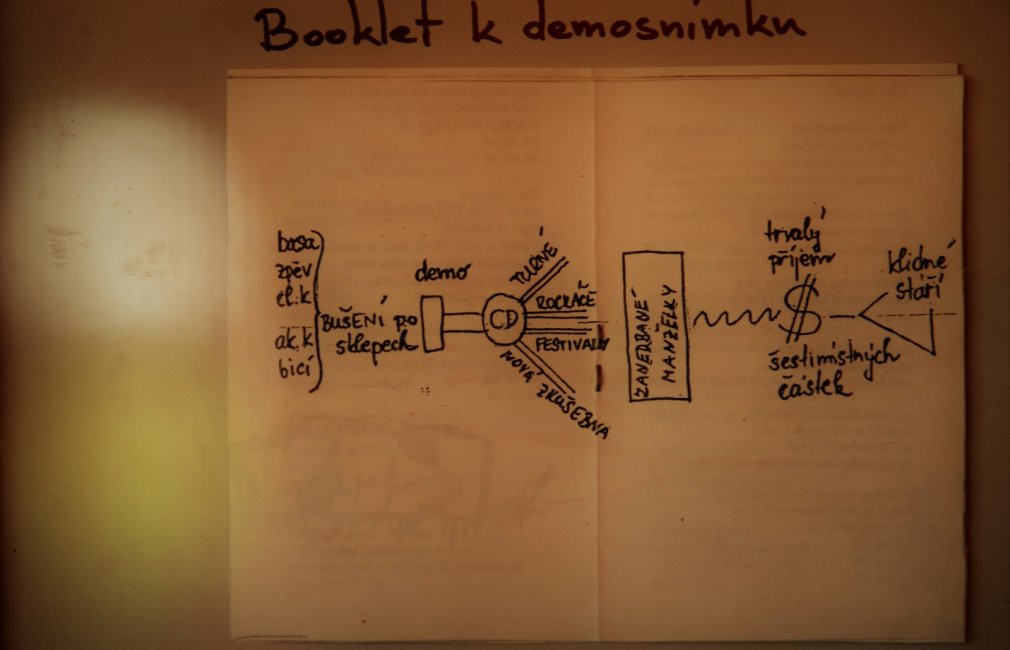 Booklet k demosnímku
basa
zpěv
el. k
ak. k
bicí
BUŠENÍ PO
sklepech
demo
CD
TURNÉ
ROCKÁČĚ
FESTIVALY
NOVÁ ZKUŠEBNA
ZANEDBANÉ
MANŽELKY
trvalý
příjem
$
šestimístných
částek
klidné
stáří